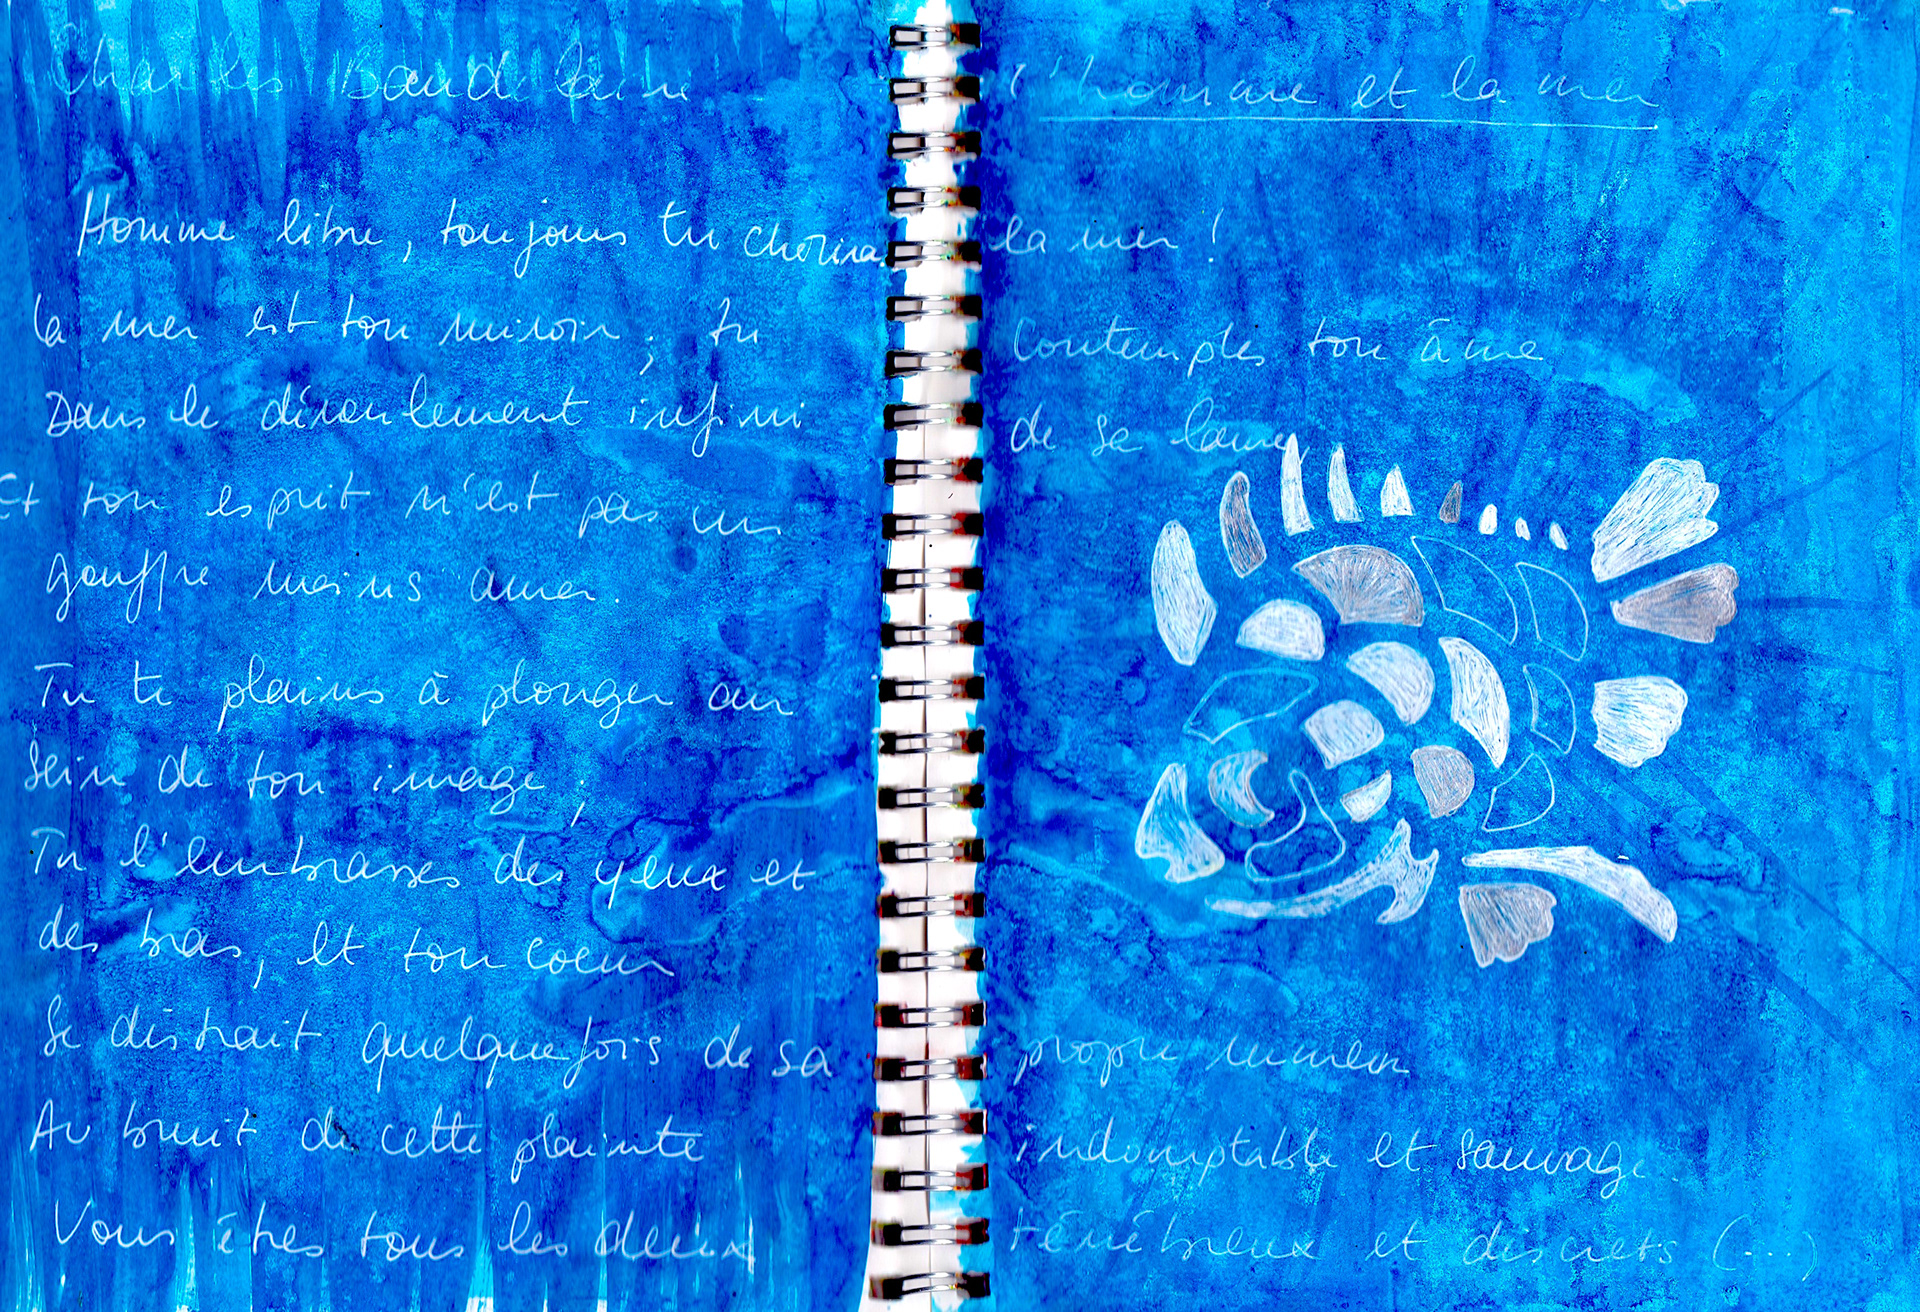 Charles Baudelaire l'homme et la mer
Homme libre, toujours tu chérira la mer !
la mer est ton miroir ; tu contemples ton âme
Dans le déroulement infini de sa lame,
Et ton esprit n'est pas un
gouffre moins amer.
Tu te plains à plonger au
sein de ton image ;
Tu l'embrasses des yeux et
des bras, et ton coeur
Se distrait quelquefois de sa propre rumeur
Au bruit de cette plainte indomptable et sauvage.
Vous êtes tous les deux ténébreux et discrets (...)